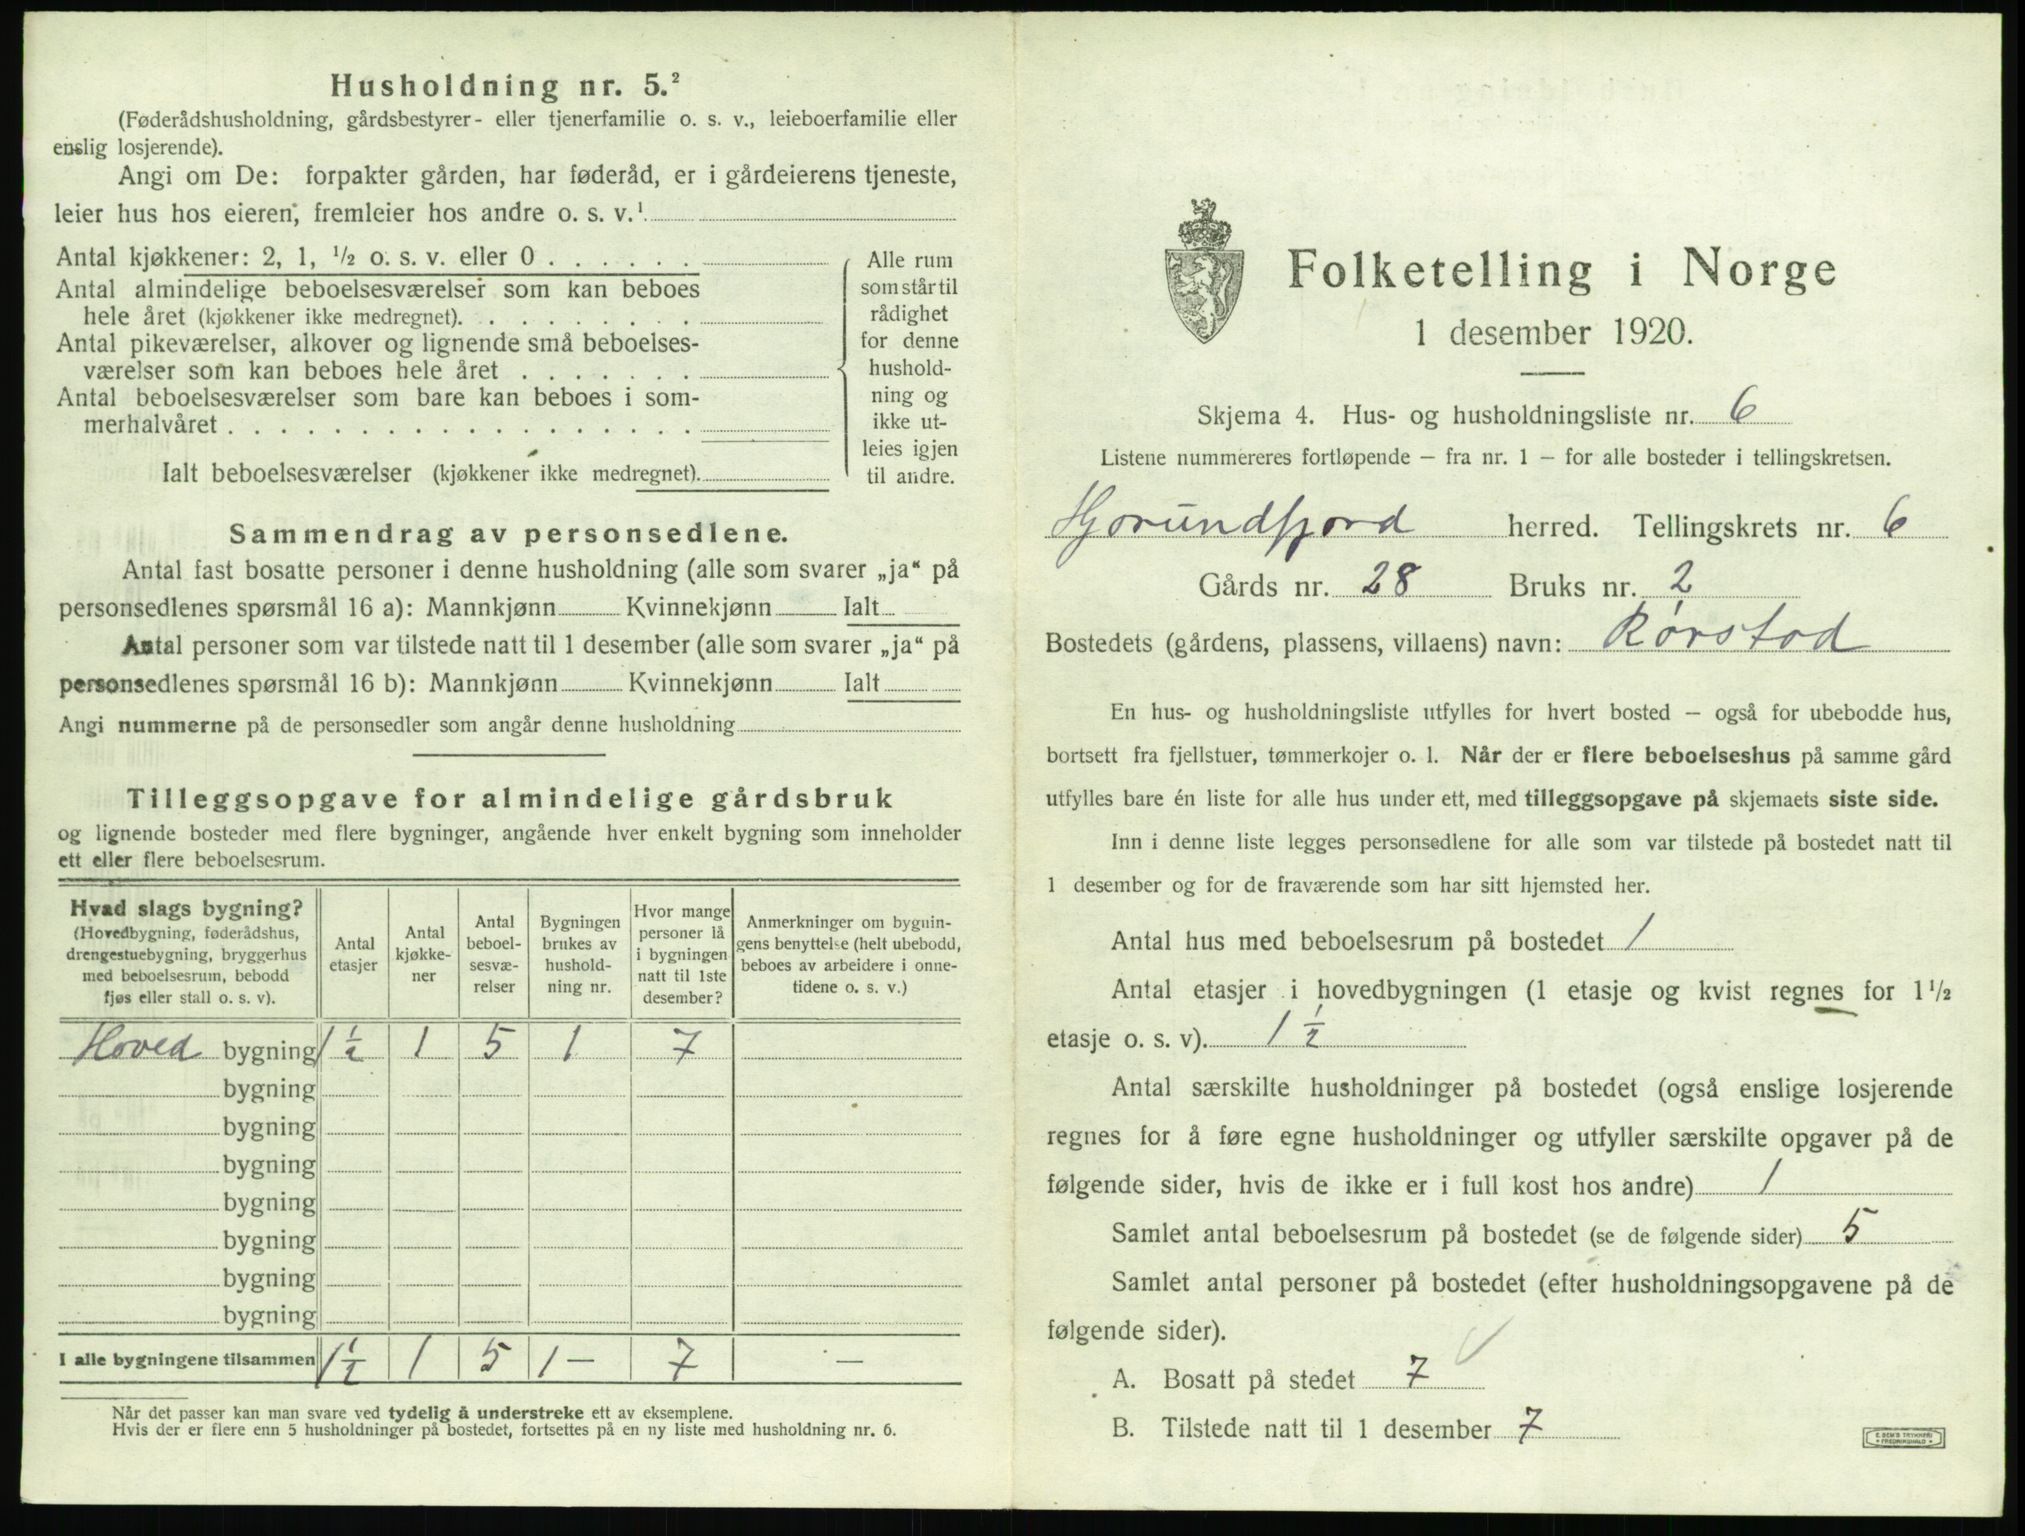 Husholdning nr. 5.²
(Føderådshusholdning, gårdsbestyrer- eller tjenerfamilie o. s. v., leieboerfamilie eller
enslig losjerende).
Angi om De: forpakter gården, har føderåd, er i gårdeierens tjeneste,
leier hus hos eieren, fremleier hos andre o. s. v.¹
Antal kjøkkener: 2, 1, ½ o. s. v. eller 0 . . . . . .
Antal almindelige beboelsesværelser som kan beboes
hele året (kjøkkener ikke medregnet). . . . . . . . .
Antal pikeværelser, alkover og lignende små beboelses-
værelser som kan beboes hele året . . . . . . .
Antal beboelsesværelser som bare kan beboes i som-
merhalvåret . . . . . . . . . . . . . . . . . .
Ialt beboelsesværelser (kjøkkener ikke medregnet).
Alle rum
som står til
rådighet
for denne
hushold-
ning og
ikke ut-
leies igjen
til andre.
Sammendrag av personsedlene.
Antal fast bosatte personer i denne husholdning (alle som svarer „ja“ på
personsedlenes spørsmål 16 a): Mannkjønn Kvinnekjønn Ialt
Antal personer som var tilstede natt til 1 desember (alle som svarer „ja“ på
personsedlenes spørsmål 16 b): Mannkjønn Kvinnekjønn Ialt
Angi nummerne på de personsedler som angår denne husholdning
Tilleggsopgave for almindelige gårdsbruk
og lignende bosteder med flere bygninger, angående hver enkelt bygning som inneholder
ett eller flere beboelsesrum.
Hvad slags bygning?
(Hovedbygning, føderådshus,
drengestuebygning, bryggerhus
med beboelsesrum, bebodd
fjøs eller stall o. s. v).
Antal
etasjer
Antal
kjøkke-
ner
Antal
beboel-
sesvæ-
relser
Bygningen
brukes av
hushold-
ning nr.
Hvor mange
personer lå
i bygningen
natt til 1ste
desember?
Anmerkninger om bygnin-
gens benyttelse (helt ubebodd,
beboes av arbeidere i onne-
tidene o. s. v.)
Hoved bygning 1 ½ 1 5 1 7
bygning
bygning
bygning
bygning
bygning
bygning
bygning
I alle bygningene tilsammen 1 ½ 1 5 1 — 7 —
Når det passer kan man svare ved tydelig å understreke ett av eksemplene.
Hvis der er flere enn 5 husholdninger på bostedet, fortsettes på en ny liste med husholdning nr. 6.
Folketelling i Norge
1 desember 1920.
Skjema 4. Hus- og husholdningsliste nr. 6
Listene nummereres fortløpende — fra nr. 1 — for alle bosteder i tellingskretsen.
Hjorundfjord herred. Tellingskrets nr. 6
Gårds nr. 28 Bruks nr. 2
Bostedets (gårdens, plassens, villaens) navn: Rørstad
En hus- og husholdningsliste utfylles for hvert bosted — også for ubebodde hus,
bortsett fra fjellstuer, tømmerkojer o. l. Når der er flere beboelseshus på samme gård
utfylles bare én liste for alle hus under ett, med tilleggsopgave på skjemaets siste side.
Inn i denne liste legges personsedlene for alle som var tilstede på bostedet natt til
1 desember og for de fraværende som har sitt hjemsted her.
Antal hus med beboelsesrum på bostedet 1
Antal etasjer i hovedbygningen (1 etasje og kvist regnes for 1½
etasje o. s. v). 1 ½
Antal særskilte husholdninger på bostedet (også enslige losjerende
regnes for å føre egne husholdninger og utfyller særskilte opgaver på de
følgende sider, hvis de ikke er i full kost hos andre) 1
Samlet antal beboelsesrum på bostedet (se de følgende sider) 5
Samlet antal personer på bostedet (efter husholdningsopgavene på de
følgende sider).
A. Bosatt på stedet 7
B. Tilstede natt til 1 desember 7
E. SEM'S TRYKKERI
• FREDRIKSHALD •